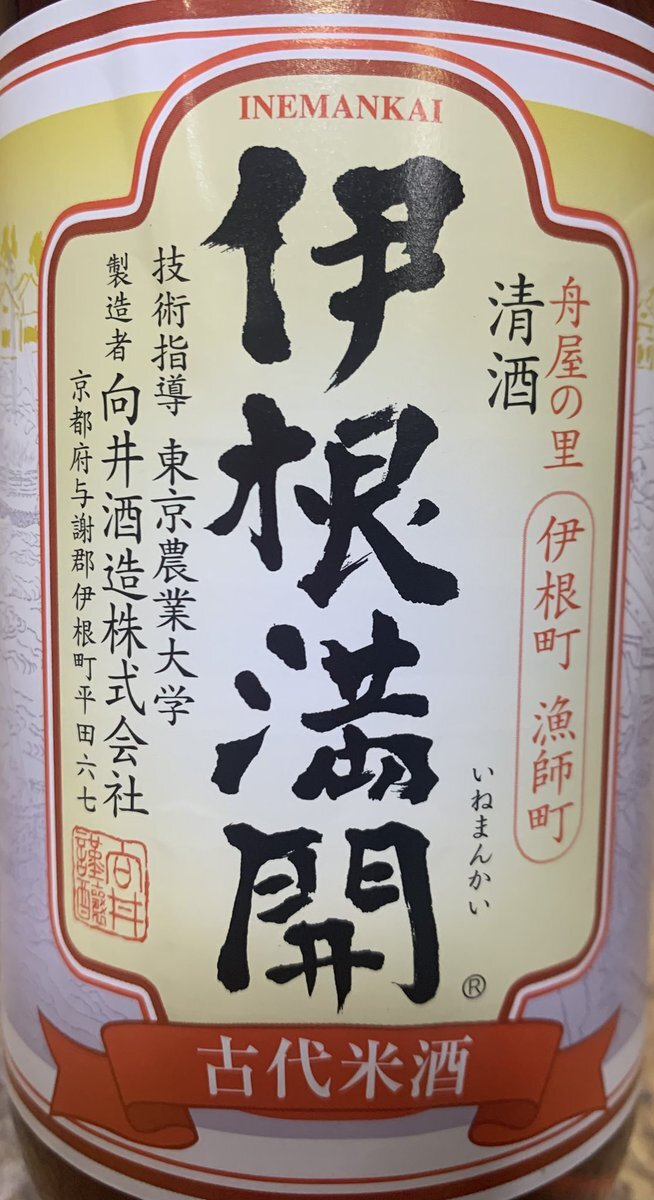 INEMANKAI
舟屋の里
伊根町 漁師町
清酒
伊根満開
いねまんかい
®
技術指導 東京農業大学
製造者 向井酒造株式会社
京都府与謝郡伊根町平田六七
向井
謹醸
古代米酒